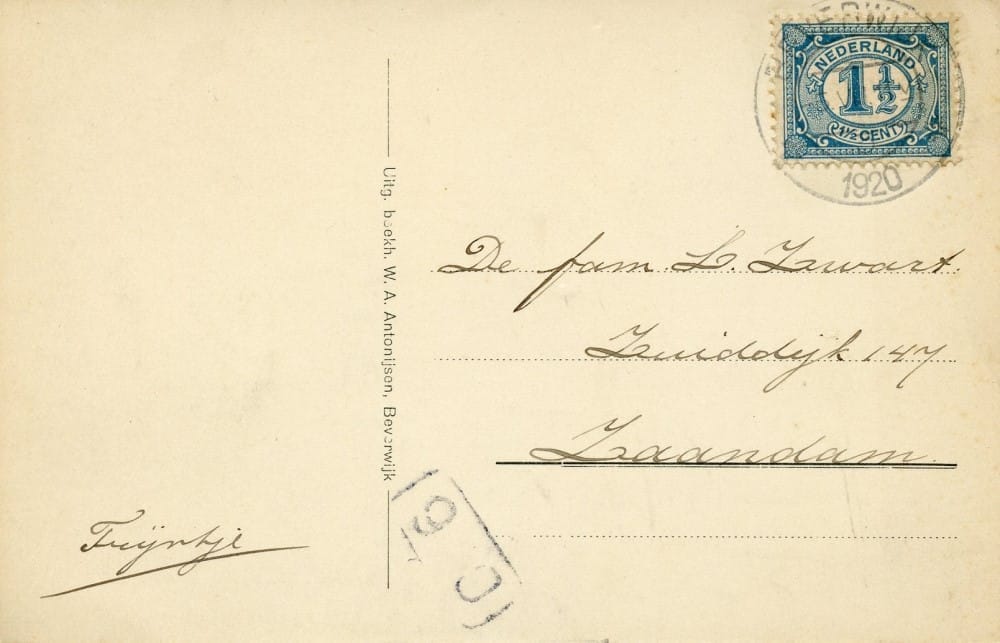 NEDERLAND
1 1/2
1½ CENT
1920
Uitg. boekh. W. A. Antonijsen, Beverwijk
De fam. L. Zwart.
Zuiddijk 147
Zaandam.
Trijntje